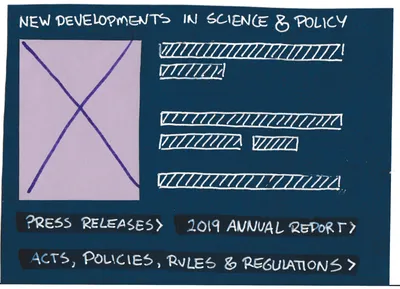 NEW DEVELOPMENTS IN SCIENCE & POLICY
PRESS RELEASES>
2019 ANNUAL REPORT>
ACTS, POLICIES, RULES & REGULATIONS >